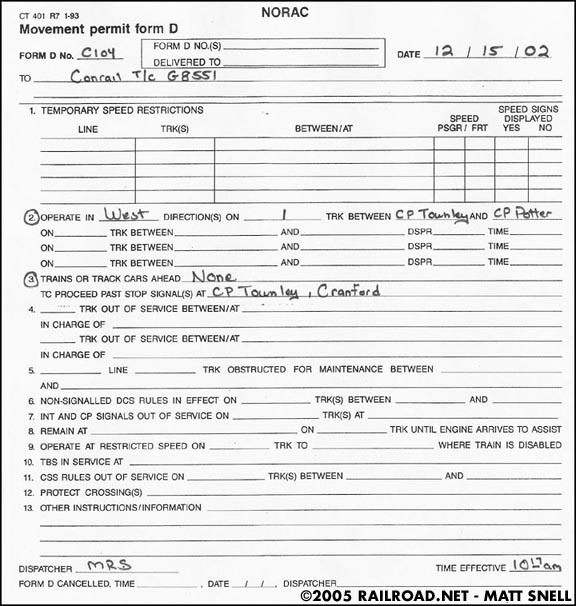 NORAC
CT 401 R7 1-93
Movement permit form D
FORM D No. C104 FORM D NO.(S) DATE 12 / 15 / 02
DELIVERED TO
TO Conrail T/c G8551
1. TEMPORARY SPEED RESTRICTIONS SPEED SPEED SIGNS DISPLAYED
LINE TRK(S) BETWEEN/AT PSGR/ FRT YES NO
2. OPERATE IN West DIRECTION(S) ON 1 TRK BETWEEN CP Townley AND CP Potter
ON TRK BETWEEN AND DSPR TIME
ON TRK BETWEEN AND DSPR TIME
ON TRK BETWEEN AND DSPR TIME
3. TRAINS OR TRACK CARS AHEAD None
TC PROCEED PAST STOP SIGNAL(S) AT CP Townley, Cranford
4. TRK OUT OF SERVICE BETWEEN/AT
IN CHARGE OF
TRK OUT OF SERVICE BETWEEN/AT
IN CHARGE OF
5. LINE TRK OBSTRUCTED FOR MAINTENANCE BETWEEN
AND
6. NON-SIGNALLED DCS RULES IN EFFECT ON TRK(S) BETWEEN AND
7. INT AND CP SIGNALS OUT OF SERVICE ON TRK(S) AT
8. REMAIN AT ON TRK UNTIL ENGINE ARRIVES TO ASSIST
9. OPERATE AT RESTRICTED SPEED ON TRK TO WHERE TRAIN IS DISABLED
10. TBS IN SERVICE AT
11. CSS RULES OUT OF SERVICE ON TRK(S) BETWEEN AND
12. PROTECT CROSSING(S)
13. OTHER INSTRUCTIONS/INFORMATION
DISPATCHER MRS TIME EFFECTIVE
FORM D CANCELLED, TIME , DATE / / , DISPATCHER
©2005 RAILROAD.NET - MATT SNELL